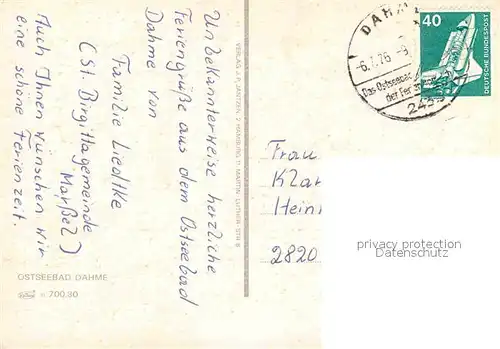 Unbekannterweise herzliche
Feriengrüße aus dem Ostseebad
Dahme von
Familie Liedtke
(St. Birgittagemeinde
Marßel)
Auch Ihnen wünschen wir
eine schöne Ferienzeit.
OSTSEEBAD DAHME
700.80
VERLAG J.P. JANTZEN, 2 HAMBURG 11, MARTIN-LUTHER-STR. 8
DAHM
-6.7.76-9
Das Ostseebad
der Fer
2435
40
DEUTSCHE BUNDESPOST
Frau
Klar
Hein
2820
privacy protection
Datenschutz